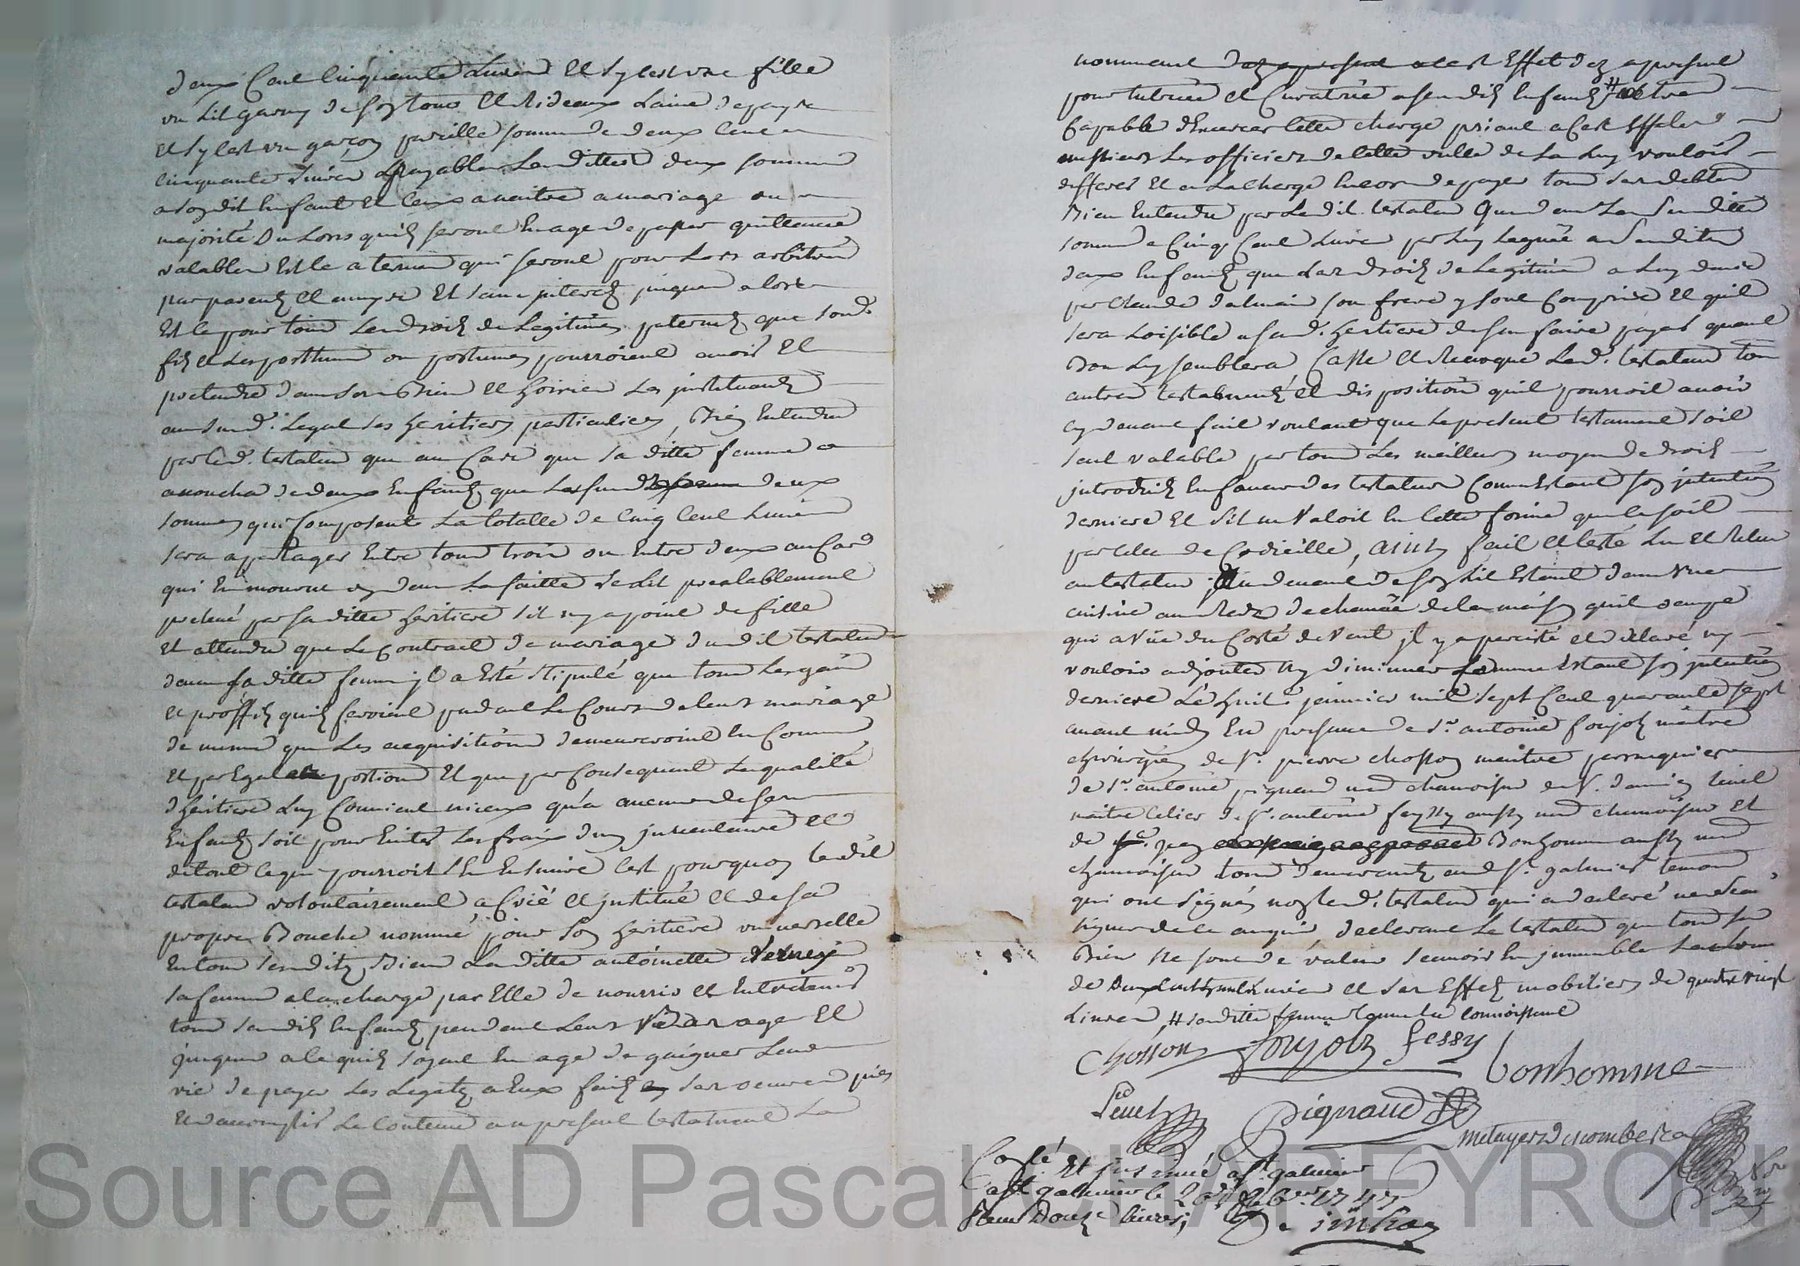 deux Cent Cinquante Livres Et sy lest une fille
un Lit garny de son tour Et Rideaux Laine de pays
Et sy lest un garçon pareille somme de deux Cent
Cinquante Livres payables Lesdittes deux sommes
a sondit Enfant Et Ceux a naitre a mariage ou
majorité Ou Lors quils seront En age de passer quittance
valables Est le a termes qui seront pour Lors arbitrés
par parents Et amys Et sans interets jusques alors
Est ce pour tous Les droits de Legitimes paternels que sond.
fils et Les posthume ou postumes pourroient avoir Et
pretendre dans ses Biens Et hoiries Les instituants
au susd. Legat ses heritiers particuliers, Bien Entendu
par led. testateur que au Cas que sa ditte femme
accoucha de deux Enfants que Les susd. deux
sommes qui Composent La totalle de Cinq Cent Livres
sera a partager Entre tous trois ou Entre deux au Cas
qui En mourut un dans La suitte Le Lit prealablement
prelevé par sa ditte heritiere s'il n'y a point de fille
Et attendu que Le Contract de mariage dudit testateur
avec sa ditte femme il a Esté stipulé que tous Les gains
et proffits quils feroient pendant Le Cours de leurs mariage
de meme que Les acquisitions demeureroint En Commun
Et par Egale portions Et que par Consequent La qualité
d'heritiere Luy Convient mieux qu'a aucuns de ses
Enfants soit pour Eviter Les fraix d'un inventaire Et
de tout Ce qui pourroit s'En Ensuivre C'est pourquoy Ledit
testateur volontairement a Créé Et institué et de sa
propre Bouche nommé pour son heritiere universelle
En tous sesdits Biens Laditte antoinette Verney
sa femme a la charge par Elle de nourrir et Entretenir
tous sesdits Enfants pendant Leurs bas age Et
jusques a ce quils soyent En age de gaigner Leur
vie de payer Les Legats a Eux faits ses oeuvres pies
Et d'accomplir Le Contenu au present testament La
nommant a cet Effet dez a present
pour tutrice et Curatrice a sesdits Enfants
Capable d'Exercer Cette charge priant a Cet Effet
messieurs Les officiers de Cette ville de Le Luy vouloir
defferer Et a La charge Encore de payer tous ses debtes
Bien Entendu par Ledit testateur Que dans La susditte
somme de Cinq Cent Livres par Luy Leguée a sesdits
deux Enfants que Les droits de Legitime a Luy deue
par Claude dalmais son frere y sont Compris Et quil
sera Loisible a sad. heritiere de s'en faire payer quant
Bon Luy semblera Casse et Revoque Led. testateur tous
autres testaments et dispositions quil pourroit avoir
cy devant fait voulant que Le present testament soit
seul valable par tous Les meilleurs moyens de droit
introduits En faveur des testateurs Comme Estant son intention
derniere Et s'il ne Valoit En Cette forme quelle soit
par Celle de Codicille, ainsy fait et testé Lu et Relu
au testateur au devant de son Lit Estant dans une
cuisine au Rez de chaussée de la maison quil occupe
qui a Vüe du Costé de Vent il y a percisté et déclaré ny
vouloir adjouter ny diminuer Comme Estant son intention
derniere Le huit janvier mil sept Cent quarante sept
avant midy En presence de sr. antoine foujols maitre
chirurgien de Sr. pierre chosson maitre perruquier
de Sr. antoine pignaud md chamoiseur de Sr. damien teuel
maitre sellier de Sr. antoine fessy aussy md chamoiseur et
de sr. Bonhomme aussy md
chamoiseur tous demeurants aud St. galmier temoins
qui ont signés non Led. testateur qui a declaré ne scavoir
signer de ce enquis declarant Le testateur que tous ses
Biens ne sont de valeur scavoir En immeuble La somme
de Livres et ses Effets mobiliers de quatre vingt
Livres # sa ditte femme
Chosson foujolz fessy
bonhomme
teuel
Pignaud
metayer descombes
Con.lé Et insinué a St. galmier
a St galmier le 1747
Reçu Douze livres